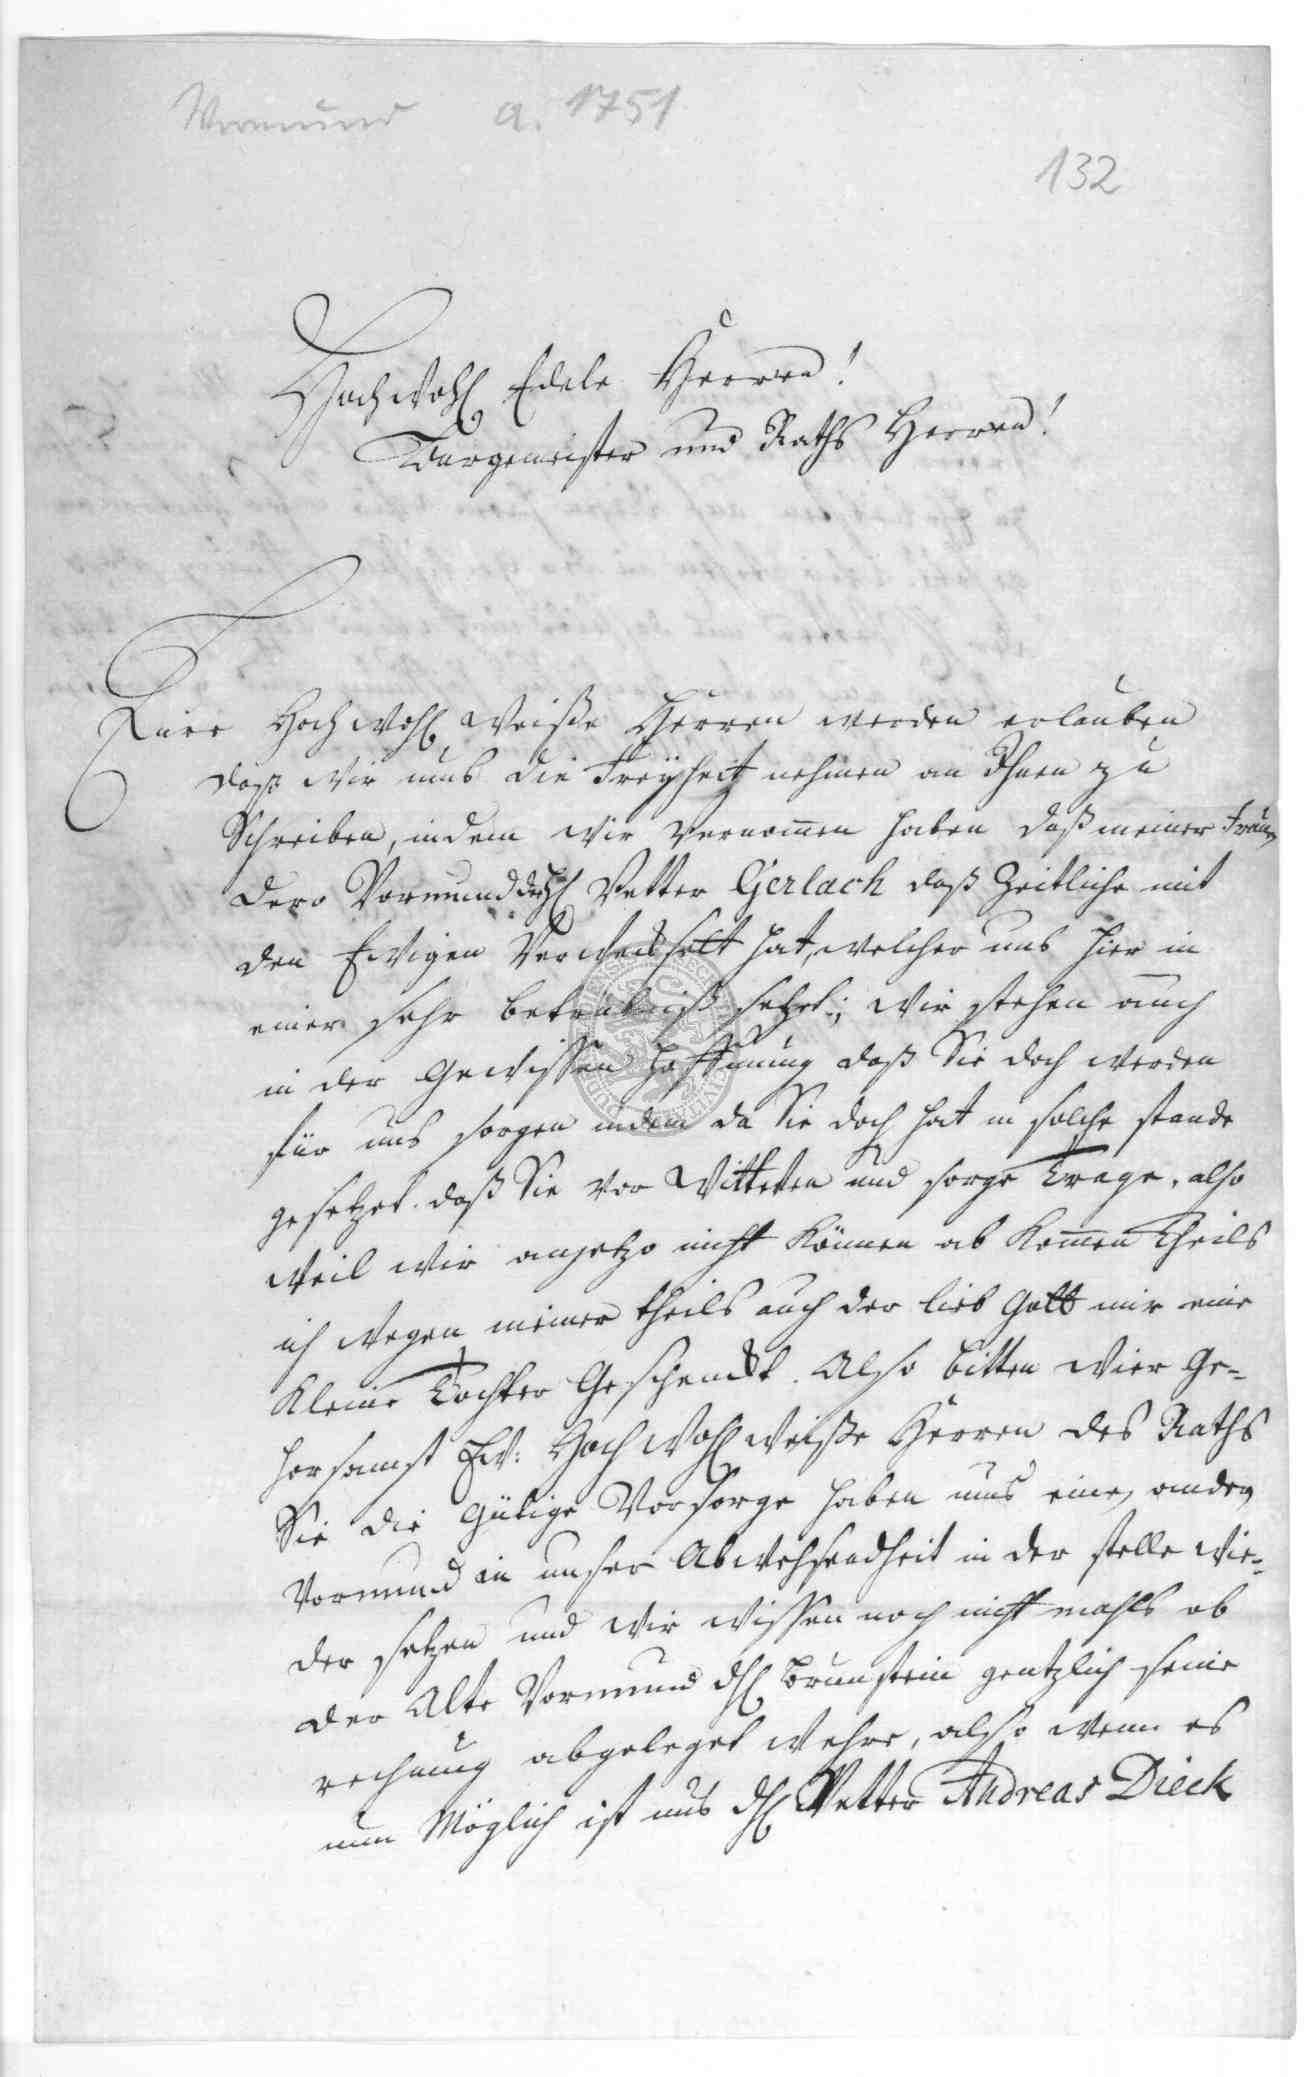 Vormund a. 1751
132
Hochwohl Edele Herren!
Burgemeister und Raths Herren!
Eure Hoch Wohl Weiße Herren werden erlauben
daß Wir uns die Freyheit nehmen an Ihnen zu
Schreiben, in dem Wir Vernomen haben daß meiner Frauen
Dero Vormund der H Vetter Gerlach daß Zeitliche mit
den Ewigen Verwekselt hat, welcher uns hier in
einer sehr betrübniß setzet; Wir stehen auch
in der Gewissen Hoffnung daß Sie doch werden
für uns sorgen indem da Sie doch hat in solche stande
gesetzet. daß Sie vor Witten und sorge Trage, also
Weil Wir anjetzo nicht können ab komen theils
ich Wegen meiner theils auch der lieb Gott mir eine
Kleine Tochter Geschenckt. Also bitten Wier Ge-
horsamst Ew: Hoch Wohl Weiße Herren des Raths
Sie die Gütige Vorsorge haben uns einen andern
Vormund in unser Abwehsendheit in der stelle Wie-
der setzen und Wir Wissen noch nicht mahls ob
der Alte Vormund H Braunstein gentzlich seine
rechnung abgeleget Wehre, also Wenn es
nun Möglich ist uns H Vetter Andreas Dieck